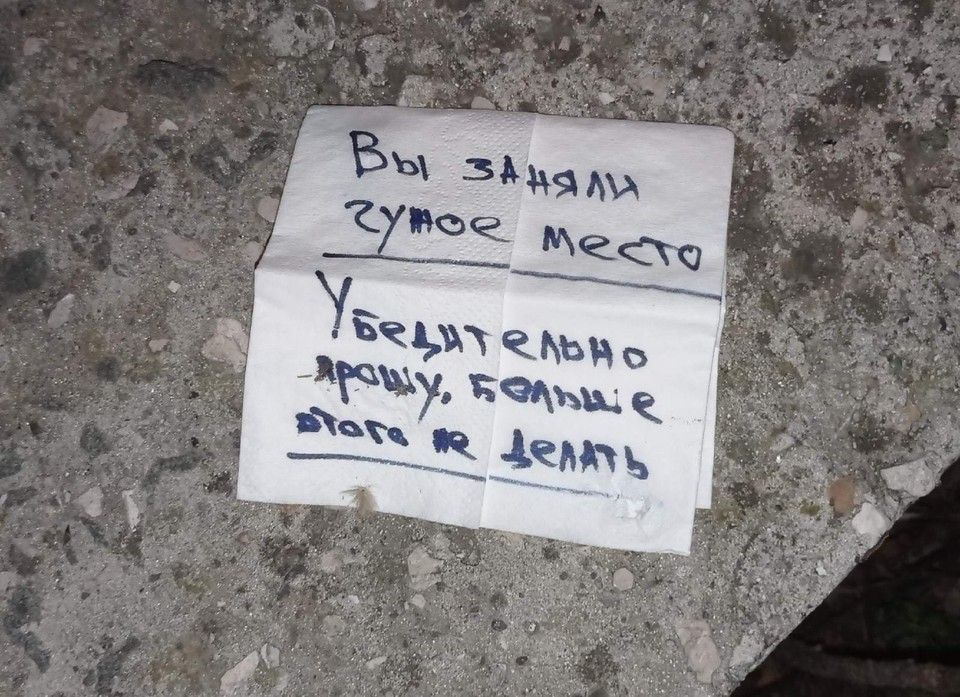 Вы заняли
чужое место
Убедительно
прошу, больше
этого не делать